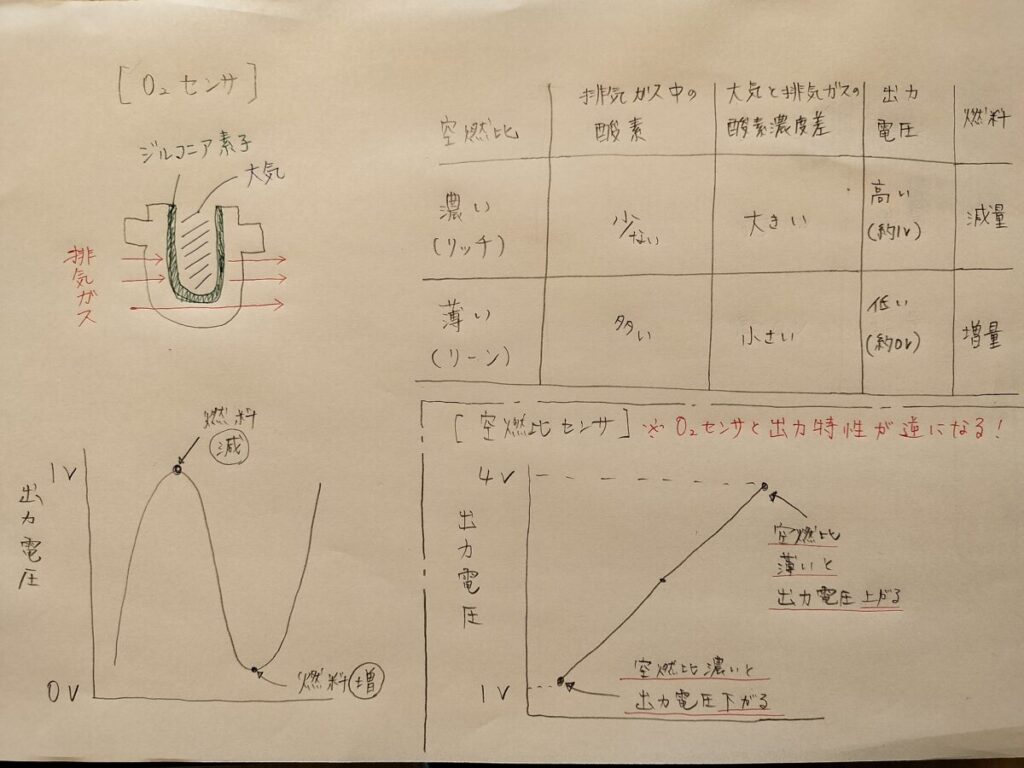 [O₂センサ]
ジルコニア素子
大気
排気ガス
空燃比
排気ガス中の
酸素
大気と排気ガスの
酸素濃度差
出力
電圧
燃料
濃い
(リッチ)
少ない
大きい
高い
(約1v)
減量
薄い
(リーン)
多い
小さい
低い
(約0v)
増量
燃料
減
1V
出力電圧
0V
燃料増
[空燃比センサ] ※O₂センサと出力特性が逆になる!
4V
出力電圧
1V
空燃比
薄いと
出力電圧上がる
空燃比濃いと
出力電圧下がる